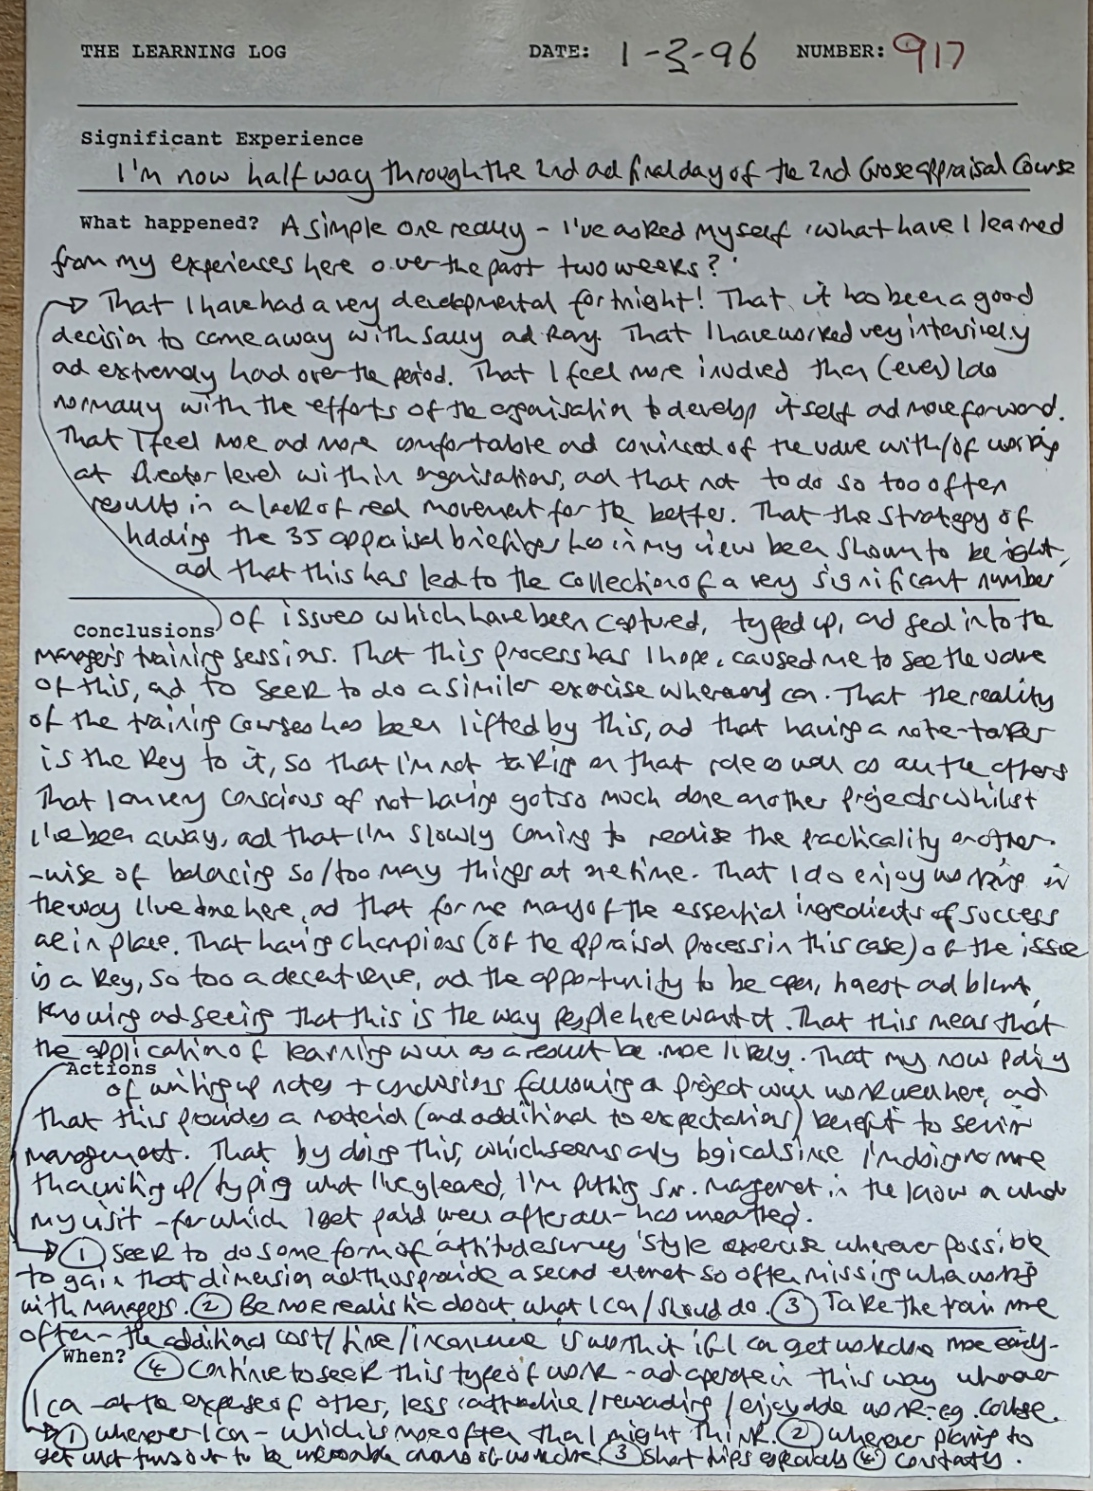 THE LEARNING LOG DATE: 1-3-96 NUMBER: 917
Significant Experience
I'm now half way through the 2nd ad final day of the 2nd appraisal Course
What happened? A simple one really - I've asked myself 'what have I learned
from my experiences here over the past two weeks?'
→ That I have had a very developmental fortnight! That it has been a good
decision to come away with Sally ad Ray. That I have worked very intensively
ad extremely hard over the period. That I feel more involved than (even) I do
normally with the efforts of the organisation to develop itself ad move forward.
That I feel more ad more comfortable ad convinced of the value with/of working
at Director level within organisations, ad that not to do so too often
results in a lack of real movement for the better. That the strategy of
holding the 35 appraisal briefings has in my view been shown to be right,
ad that this has led to the collection of a very significant number
Conclusions of issues which have been captured, typed up, and fed into the
managers training sessions. That this process has I hope, caused me to see the value
of this, ad to seek to do a similar exercise wherever I can. That the reality
of the training courses has been lifted by this, ad that having a note-taker
is the key to it, so that I'm not taking on that role as well as all the others
That I am very conscious of not having got so much done on other projects whilst
I've been away, ad that I'm slowly coming to realise the practicality or other-
-wise of balancing so/too many things at one time. That I do enjoy working in
the way I've done here, ad that for me many of the essential ingredients of success
are in place. That having champions (of the appraisal process in this case) of the issue
is a key, so too a decent venue, ad the opportunity to be open, honest ad blunt,
knowing ad seeing that this is the way people here want it. That this means that
the application of learning will as a result be more likely. That my now policy
Actions of writing up notes + conclusions following a project will work well here, ad
that this provides a material (and additional to expectations) benefit to senior
management. That by doing this, which seems only logical since I'm doing no more
than writing up/typing what I've gleaned, I'm putting Snr. Magement in the know on what
my visit - for which I get paid well after all - has unearthed.
→ ① Seek to do some form of 'attitude survey' style exercise wherever possible
to gain that dimension ad thus provide a second element so often missing when working
with managers. ② Be more realistic about what I can/should do. ③ Take the train more
often - the additional cost/time/inconvenience is worth it if I can get work done more easily.
When? ④ Continue to seek this type of work - ad operate in this way wherever
I can at the expense of other, less attractive/rewarding/enjoyable work: eg. college.
→ ① whenever I can - which is more often than I might think. ② wherever planning to
get what turns out to be unreasonable amounts of work done ③ Short trips especially ④ Constantly.